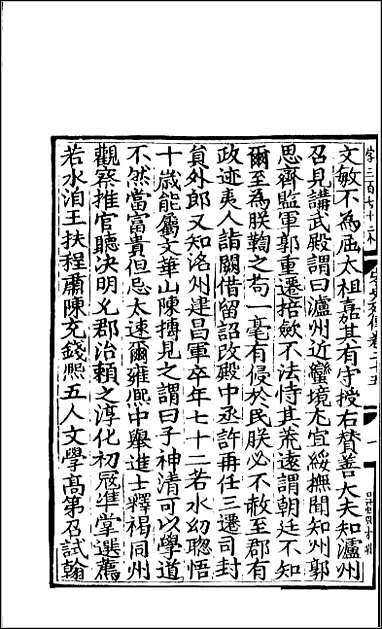 文敏不為屈太祖嘉其有守授右贊善大夫知瀘州
召見講武殿謂曰瀘州近蠻境尤宜綏撫聞知州郭
思齊監軍郭重遷掊斂不法恃其荒遠謂朝廷不知
爾至為朕鞫之苟一毫有侵於民朕必不赦至郡有
政迹夷人詣闕借留詔改殿中丞許再任三遷司封
員外郎又知洺州建昌軍卒年七十二若水幼聦悟
十歲能屬文華山陳摶見之謂曰子神清可以學道
不然當富貴但忌太速爾雍熙中舉進士釋褐同州
觀察推官聽決明允郡治賴之淳化初寇準掌選薦
若水洎王扶程肅陳充錢熙五人文學高第召試翰